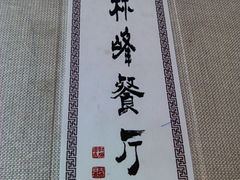 林峰餐厅